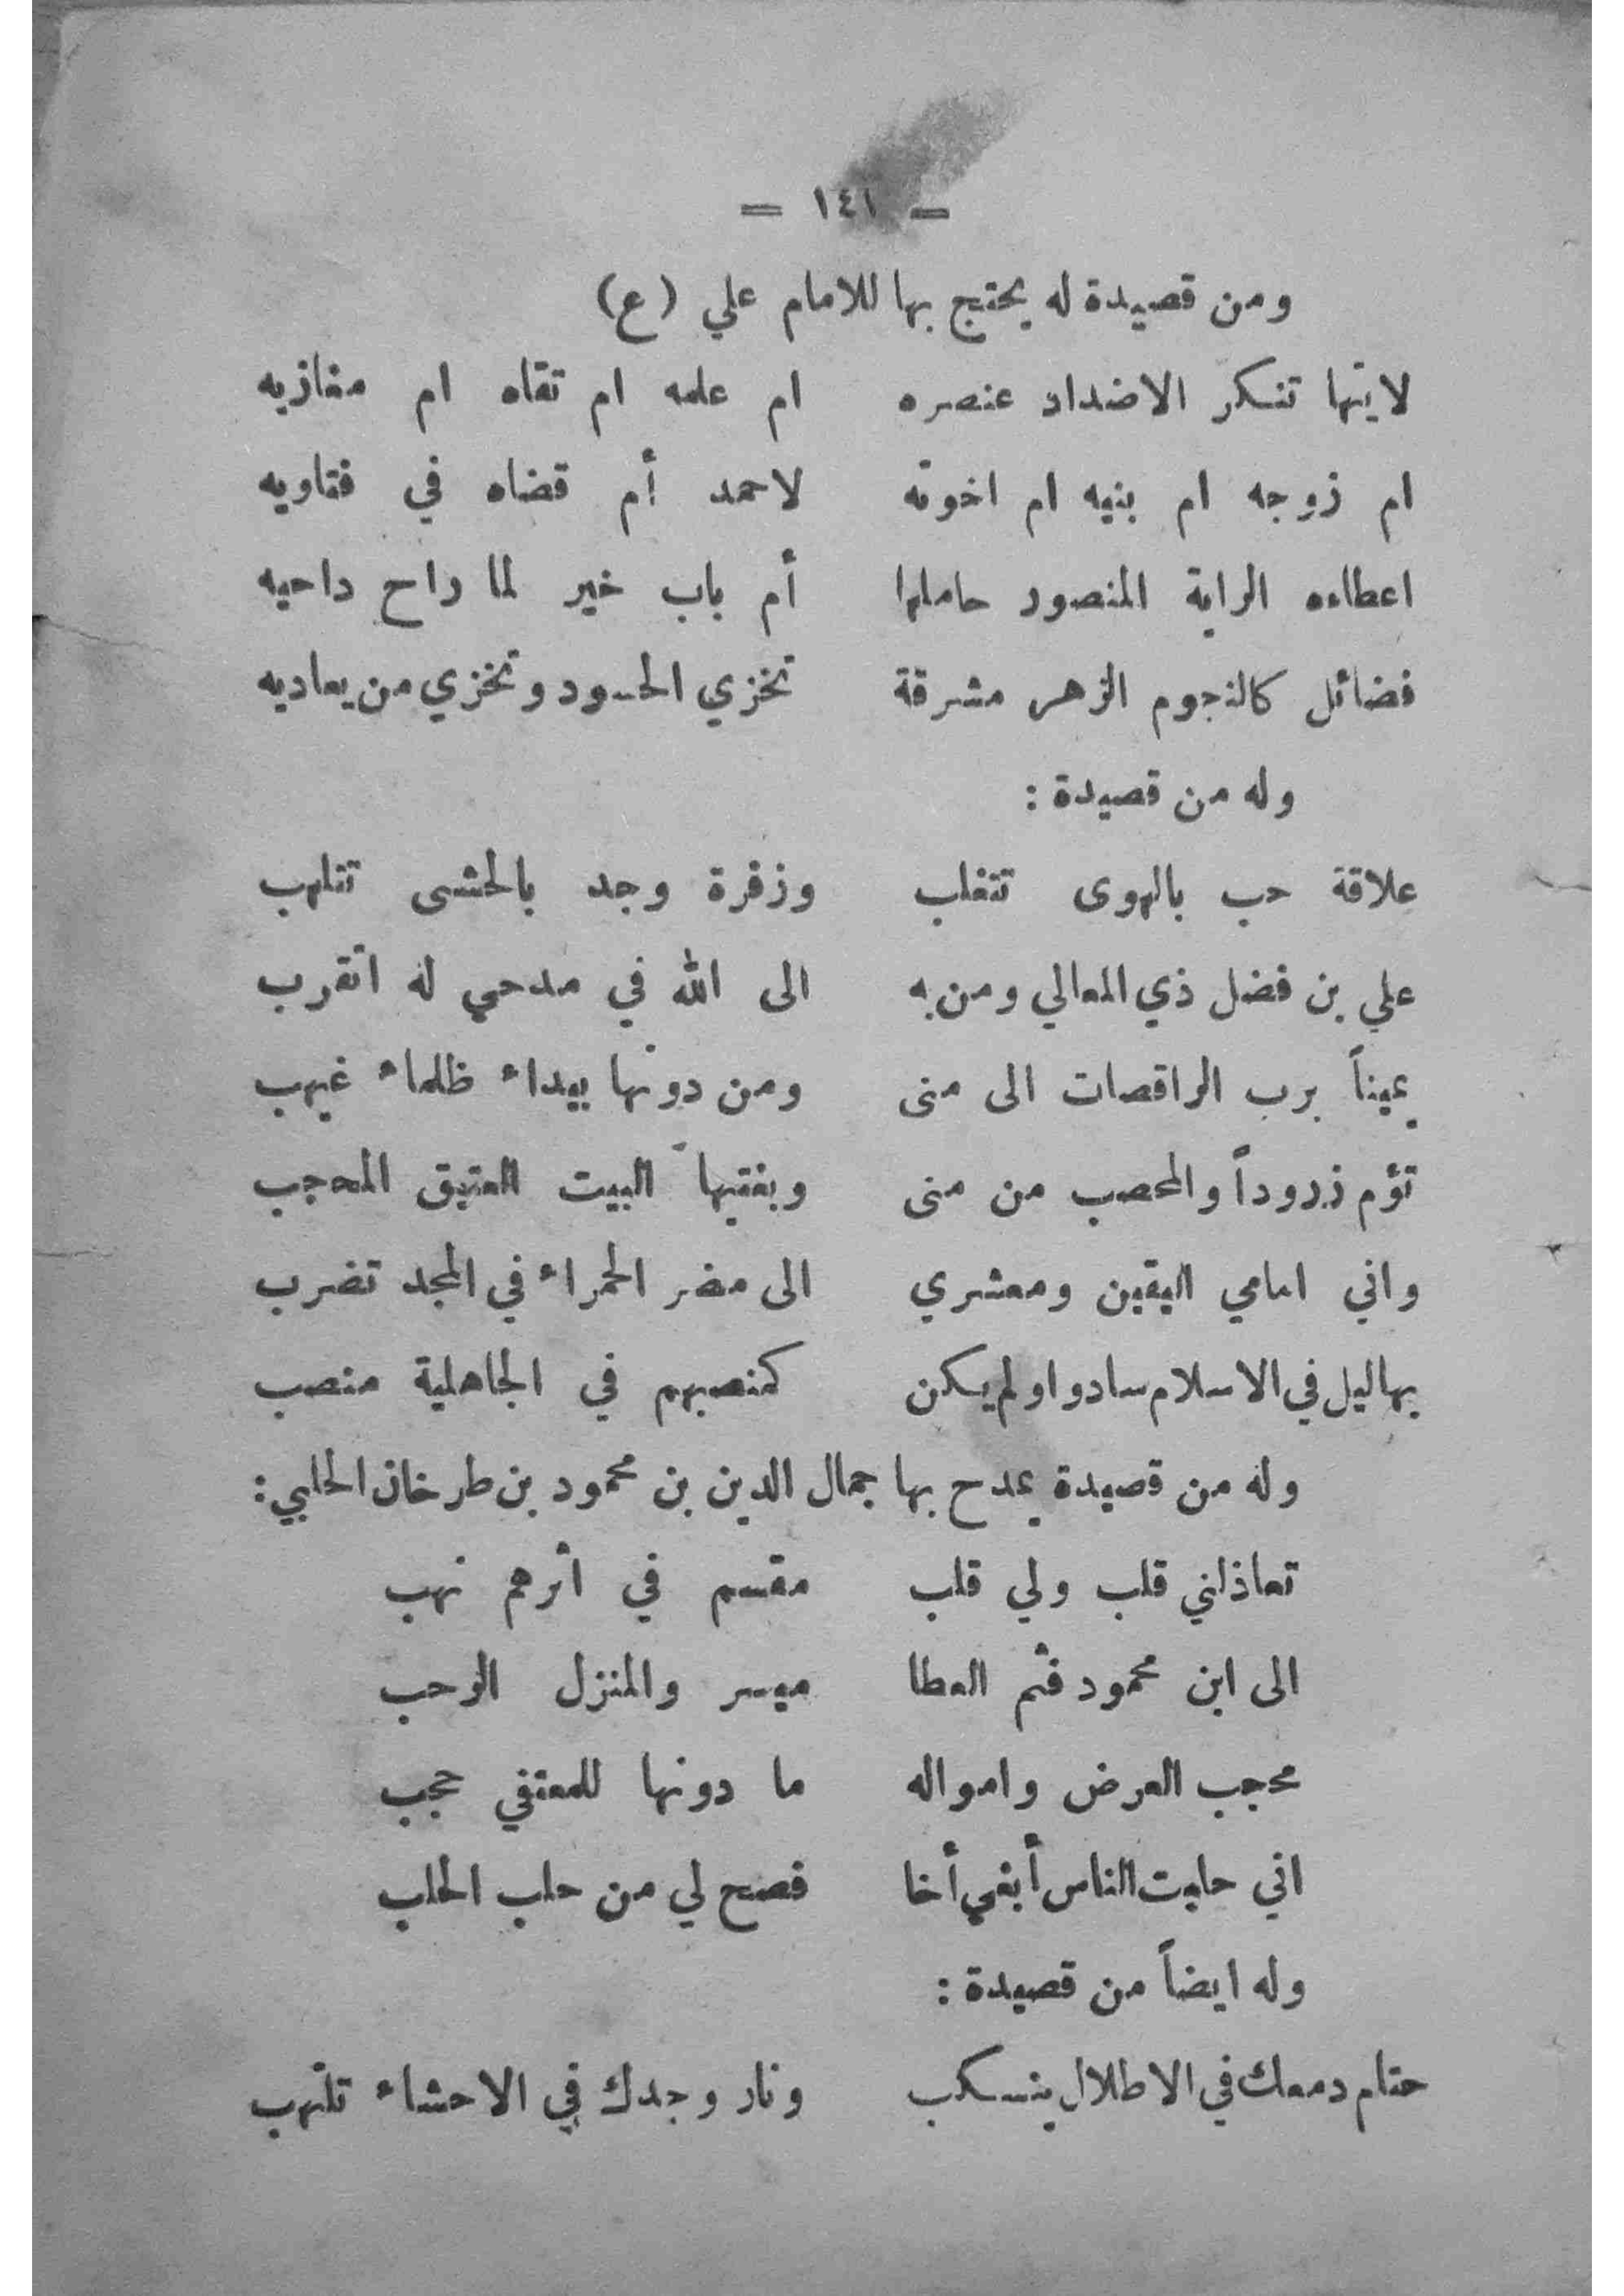 = ١٤١ =
ومن قصيدة له يحتج بها للامام علي (ع)
لايتها تنكر الاضداد عنصره ام علمه ام تقاه ام مغازيه
ام زوجه ام بنيه ام اخوته لاحمد أم قضاه في فتاويه
اعطاءه الراية المنصور حاملها أم باب خيبر لما راح داحيه
فضائل كالنجوم الزهر مشرقة تخزي الحسود وتخزي من يعاديه
وله من قصيدة :
علاقة حب بالهوى تتغلب وزفرة وجد بالحشى تتلهب
علي بن فضل ذي المعالي ومن به الى الله في مدحي له اتقرب
يميناً برب الراقصات الى منى ومن دونها بيداء ظلماء غيهب
تؤم زروداً والمحصب من منى وبغتيها البيت العتيق المحجب
واني امامي اليقين ومعشري الى مضر الحمراء في المجد تضرب
بهاليل في الاسلام سادوا ولم يكن كمنصبهم في الجاهلية منصب
وله من قصيدة يمدح بها جمال الدين بن محمود بن طرخان الحلبي :
تعاذلني قلب ولي قلب مقسم في اثرهم نهب
الى ابن محمود فثم العطا ميسر والمنزل الرحب
محجب العرض وامواله ما دونها للمعتفي حجب
اني حلبت الناس أبغي أخا فصح لي من حلب الحلب
وله ايضاً من قصيدة :
حتام دمعك في الاطلال ينسكب ونار وجدك في الاحشاء تلتهب